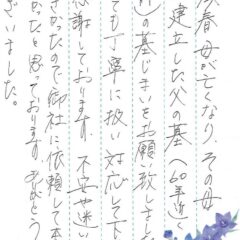 昨春母が亡くなり、その母
建立した父の墓へ60年近く
の墓じまいをお願い致しまし
ても丁寧に扱い対応して下
感謝しております。不安や迷い
きかったので御社に依頼して本
かったと思っております。ありがとう
ざいました。